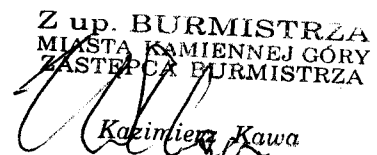 Z up. BURMISTRZA
MIASTA KAMIENNEJ GÓRY
ZASTĘPCA BURMISTRZA
Kazimierz Kawa